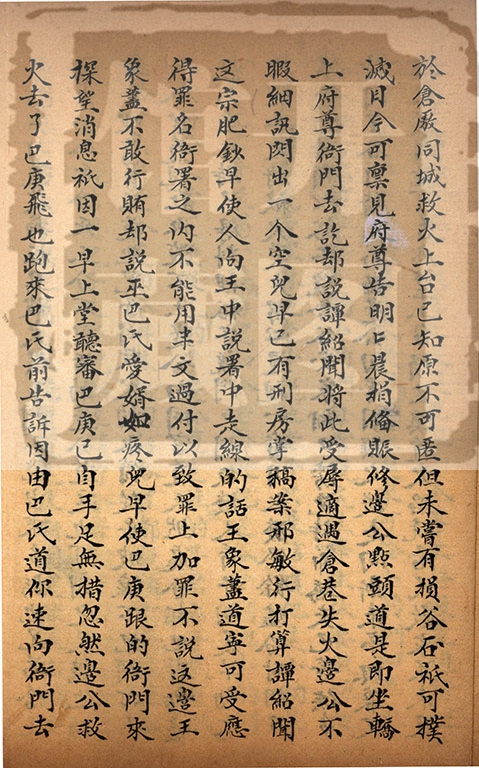 於倉廒同城救火上台已知原不可匿但未嘗有損谷石祇可撲
滅月令可禀見府尊告明口晨捐俻賑修邊公點頭道是即坐轎
上府尊衙門去訖却說譚紹聞將此受辱適遇倉巷失火邊公不
暇細訊閃出一个空兒早已有刑房掌稿案邢敏行打算譚紹聞
这宗肥鈔早使人向王中説署中走線的話王象藎道寧可受應
得罪名衙署之内不能用半文過付以致罪上加罪不説这邊王
象藎不敢行賄却説巫巴氏愛婿如疼兒早使巴庚跟的衙門來
探望消息祇因一早上堂聽審巴庚已自手足無措忽然邊公救
火去了巴庚飛也跑來巴氏前告訴因由巴氏道你速向衙門去